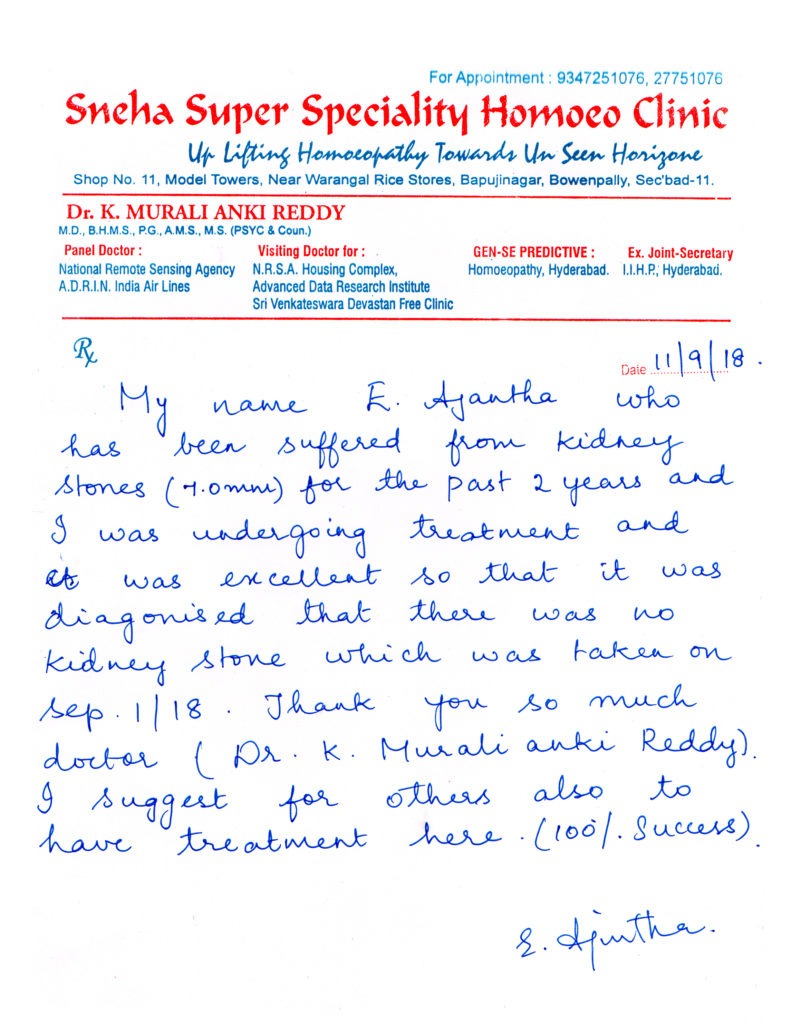 For Appointment : 9347251076, 27751076
Sneha Super Speciality Homoeo Clinic
Up Lifting Homoeopathy Towards Un Seen Horizone
Shop No. 11, Model Towers, Near Warangal Rice Stores, Bapujinagar, Bowenpally, Sec'bad-11.
Dr. K. MURALI ANKI REDDY
M.D., B.H.M.S., P.G., A.M.S., M.S. (PSYC & Coun.)
Panel Doctor : Visiting Doctor for : GEN-SE PREDICTIVE : Ex. Joint-Secretary
National Remote Sensing Agency N.R.S.A. Housing Complex, Homoeopathy, Hyderabad. I.I.H.P., Hyderabad.
A.D.R.I.N. India Air Lines Advanced Data Research Institute
Sri Venkateswara Devastan Free Clinic
℞
Date 11/9/18.
My name E. Ajantha who
has been suffered from kidney
stones (7.0mm) for the past 2 years and
I was undergoing treatment and
it was excellent so that it was
diagonised that there was no
kidney stone which was taken on
sep. 1/18. Thank you so much
doctor (Dr. K. Murali anki Reddy).
I suggest for others also to
have treatment here. (100% Success).
E. Ajntha.